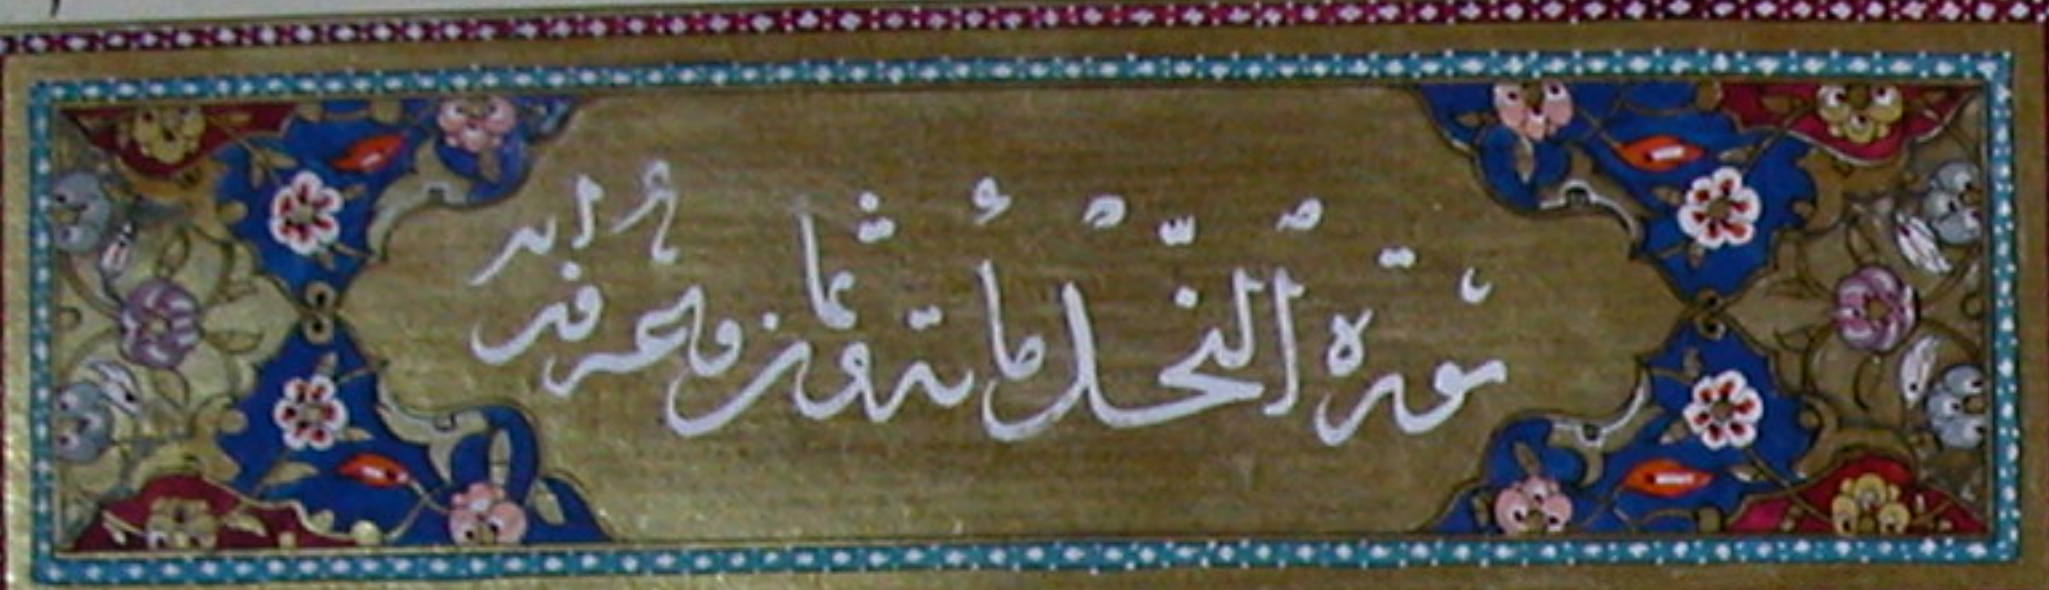 سُورَةُ النَّحل مأتة وثمان وعشرون اية